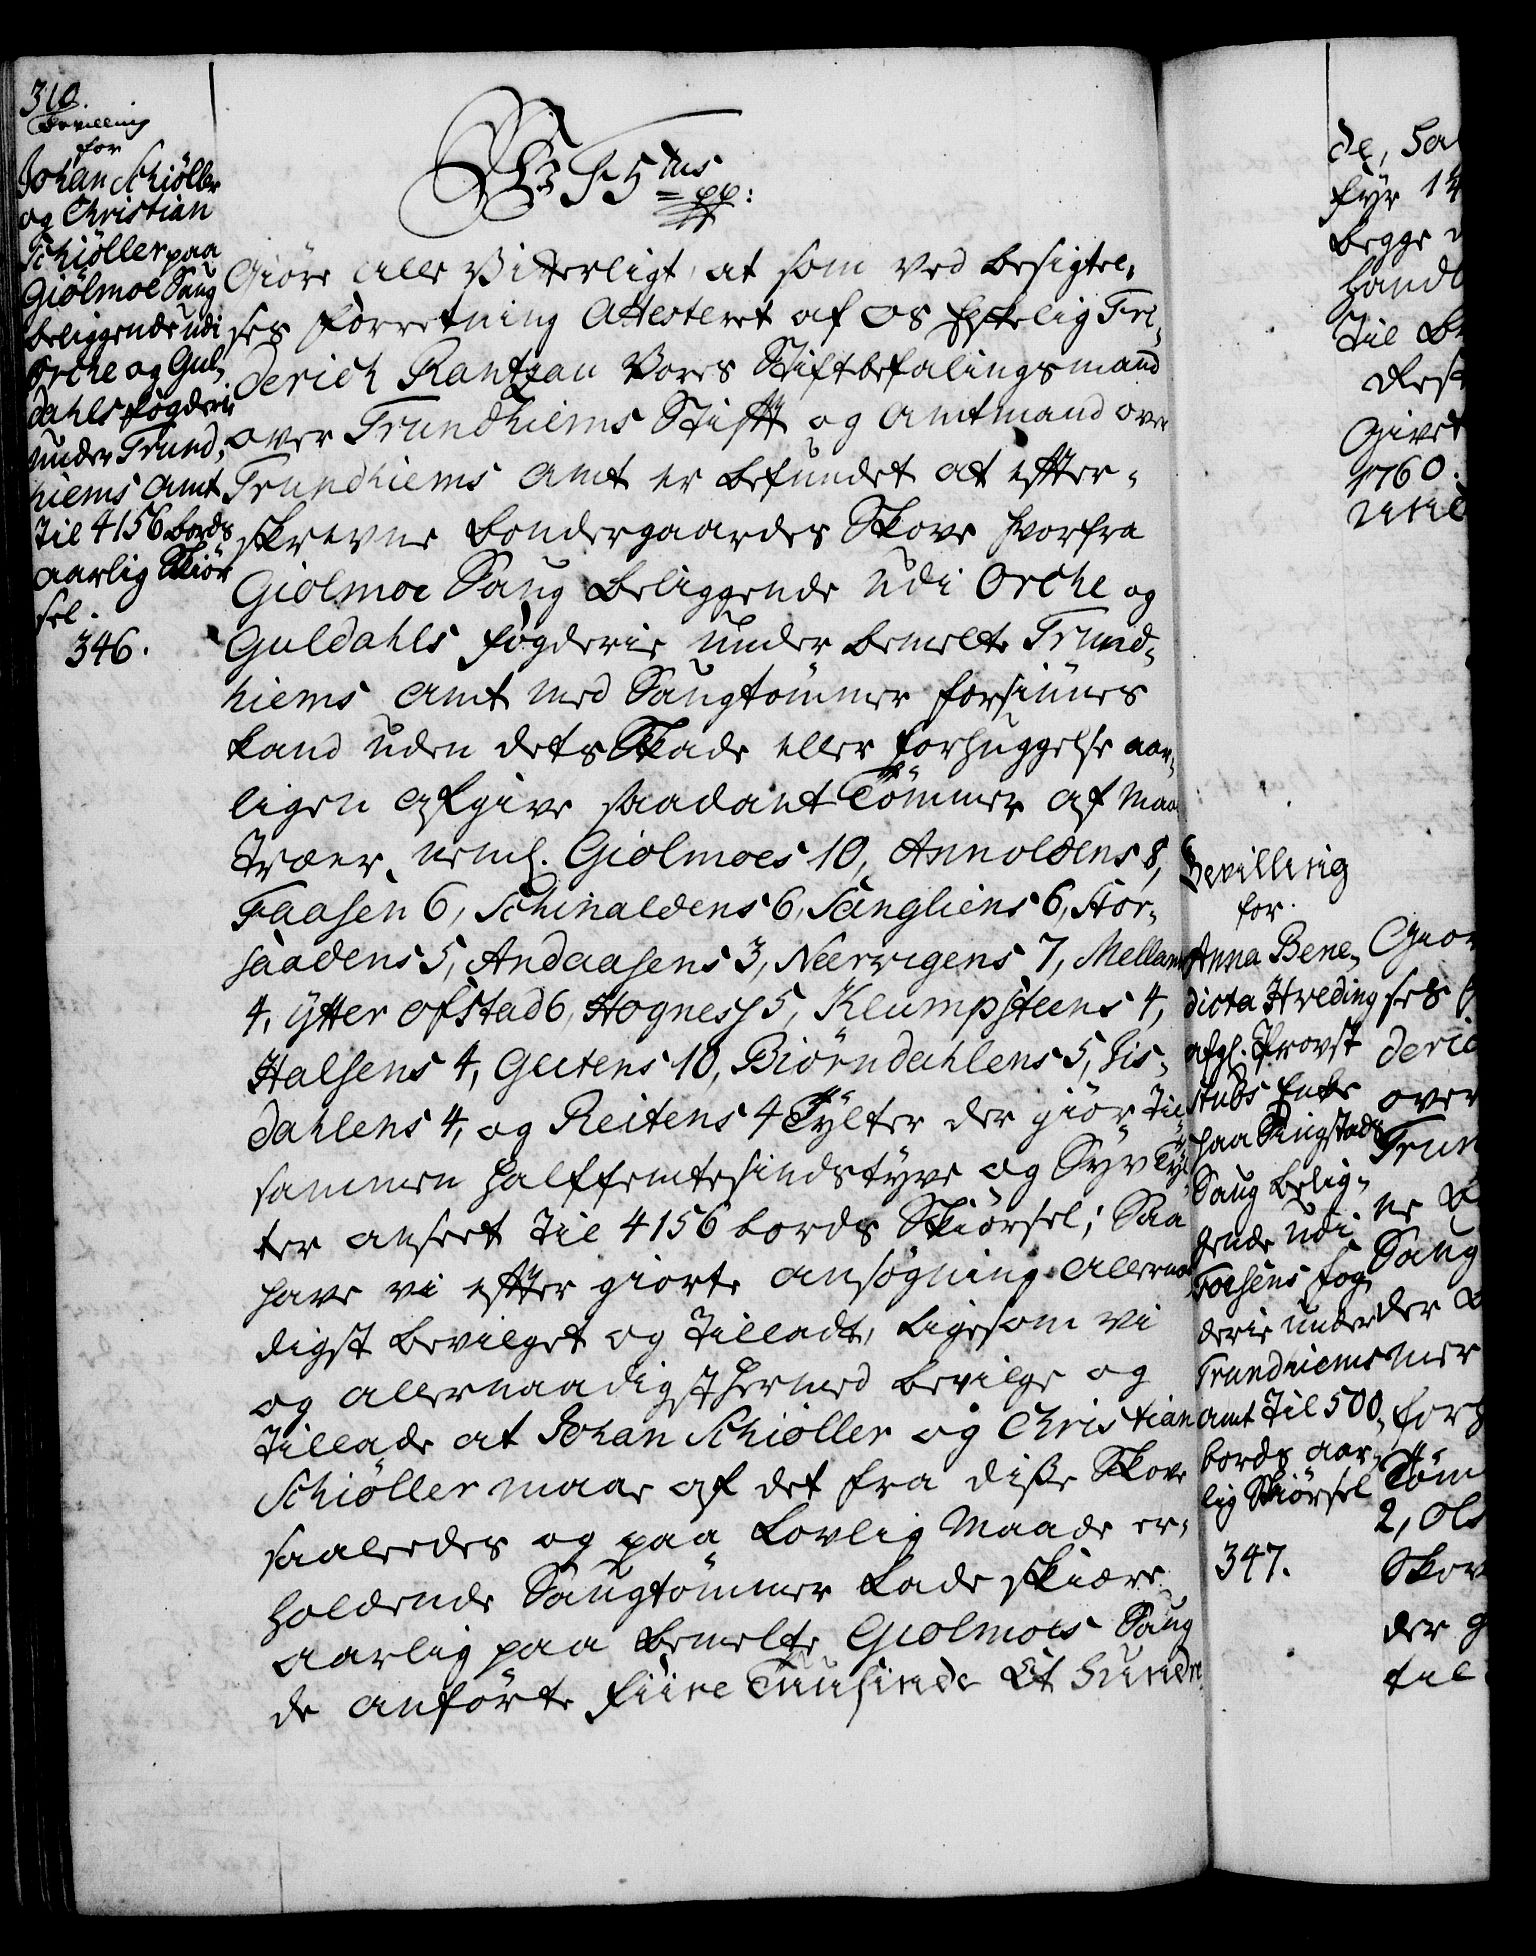 310.
Bevilling
for
Johan Schiöller
og Christian
Schiöller paa
Giölmoe Saug
beliggende udi
Orche og Gul-
dahls fogderie
under Trund,
hiems Amt
Til 4156 bords
aarlig Skiör
sel.
346.
Wi F 5 tus
= pp:
Giöre alle Vitterligt, at som ved besigtel-
ses forretning Attesteret af Os Elskelig Fri-
derich Rantzau Vores Stiftbefalingsmand
over Trundhiems Stift og Amtmand over
Trundhiems Amt er befundet at efter-
skrevne bondergaardes Skove hvorfra
Giolmoe Saug beliggende udi Orche og
Guldahls fogderie under bemelte Trund-
hiems Amt med Saugtömmer forsiunes
kand uden dets Skade eller forhuggelse aar-
ligen afgive saadant Tömmer af Maa
Træer, neml. Giolmoes 10, Annoldens 8,
Faasen 6, Schinaldens 6, Sangliens 6, Stor-
saadens 5, Andaasens 3, Neervigens 7, Mellam
4, Ytter Ofstad 6, Hogness 5, Klumpsteens 4,
Halsens 4, Geitens 10, Biörndahlens 5, Gis-
dahlens 4, og Reitens 4 Tylter der giör Til-
sammen halffemtesindstyve og Syv Tyl-
ter anseet Til 4156 bords Skiörsel; Saa
have vi efter giorte ansögning allernaa
digst bevilget og Tilladt, ligesom vi
og allernaadigst hermed bevilge og
Tillade at Johan Schiöller og Christian
Schiöller maae af det fra disse Skove
saaledes og paa Lovlig Maade er-
holdende Saugtömmer lade skiære
aarlig paa bemelte Giolmoes Saug
de anförte fiire Tuusinde Et hundre
Bevilling
for.
Anna Bene-
dicta Hveding
afgl. Provst
Stubs Enke
paa Singstads
Saug belig-
gende udi
Foesens fog
derie under
Trundhiems
Amt Til 500,
bords aar-
lig Skiörsel
347.
de, Sa
fyr 14
begge
handl
Til B
Rest
Givet
1760.
Giör
ses f
deric
over
Trun
ne B
Saug
der
mer
forh
Töm
2, Ols
Skov
der g
til